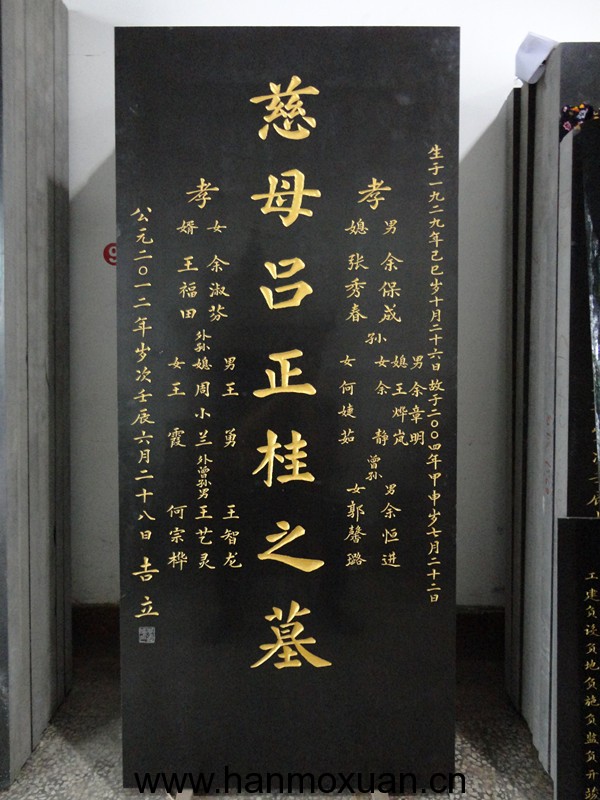 生于一九二九年己巳岁十月二十六日 故于二00四年甲申岁七月二十二日
孝
男 余保成
媳 张秀春
孙
男余章明
媳王烨岚
女余静
女何婕茹
曾孙
男余恒进
女郭馨璐
慈母吕正桂之墓
孝
女 余淑芬
婿 王福田
外孙
男王勇
媳周小兰
女王霞
外曾孙
男王艺灵
王智龙
何宗桦
公元二0一二年岁次壬辰六月二十八日 吉立
工建负读负地负施负监负开
www.hanmoxuan.cn